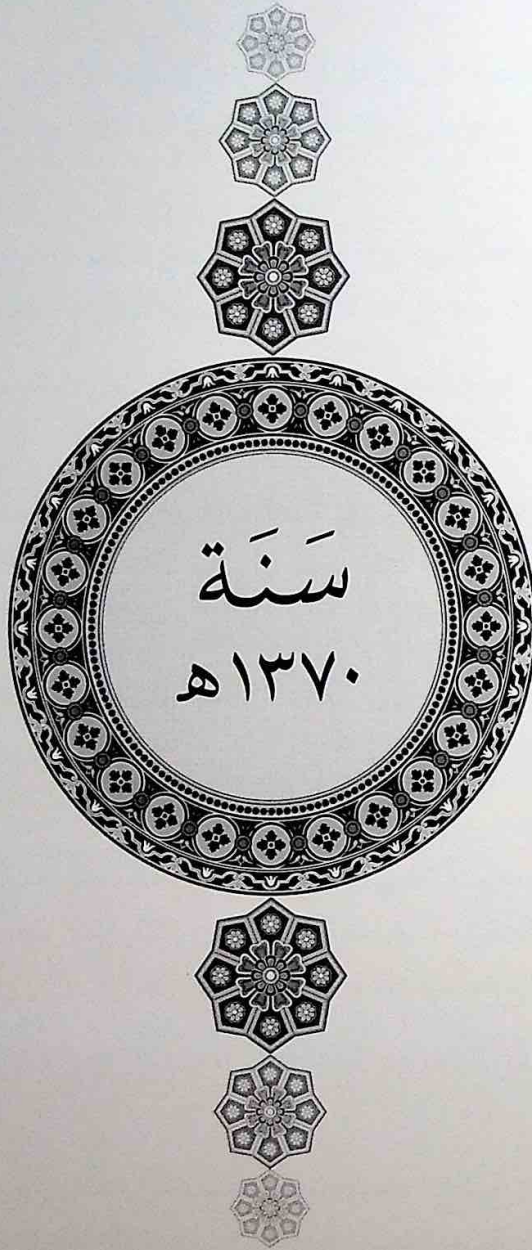 سَنَة
١٣٧٠هـ